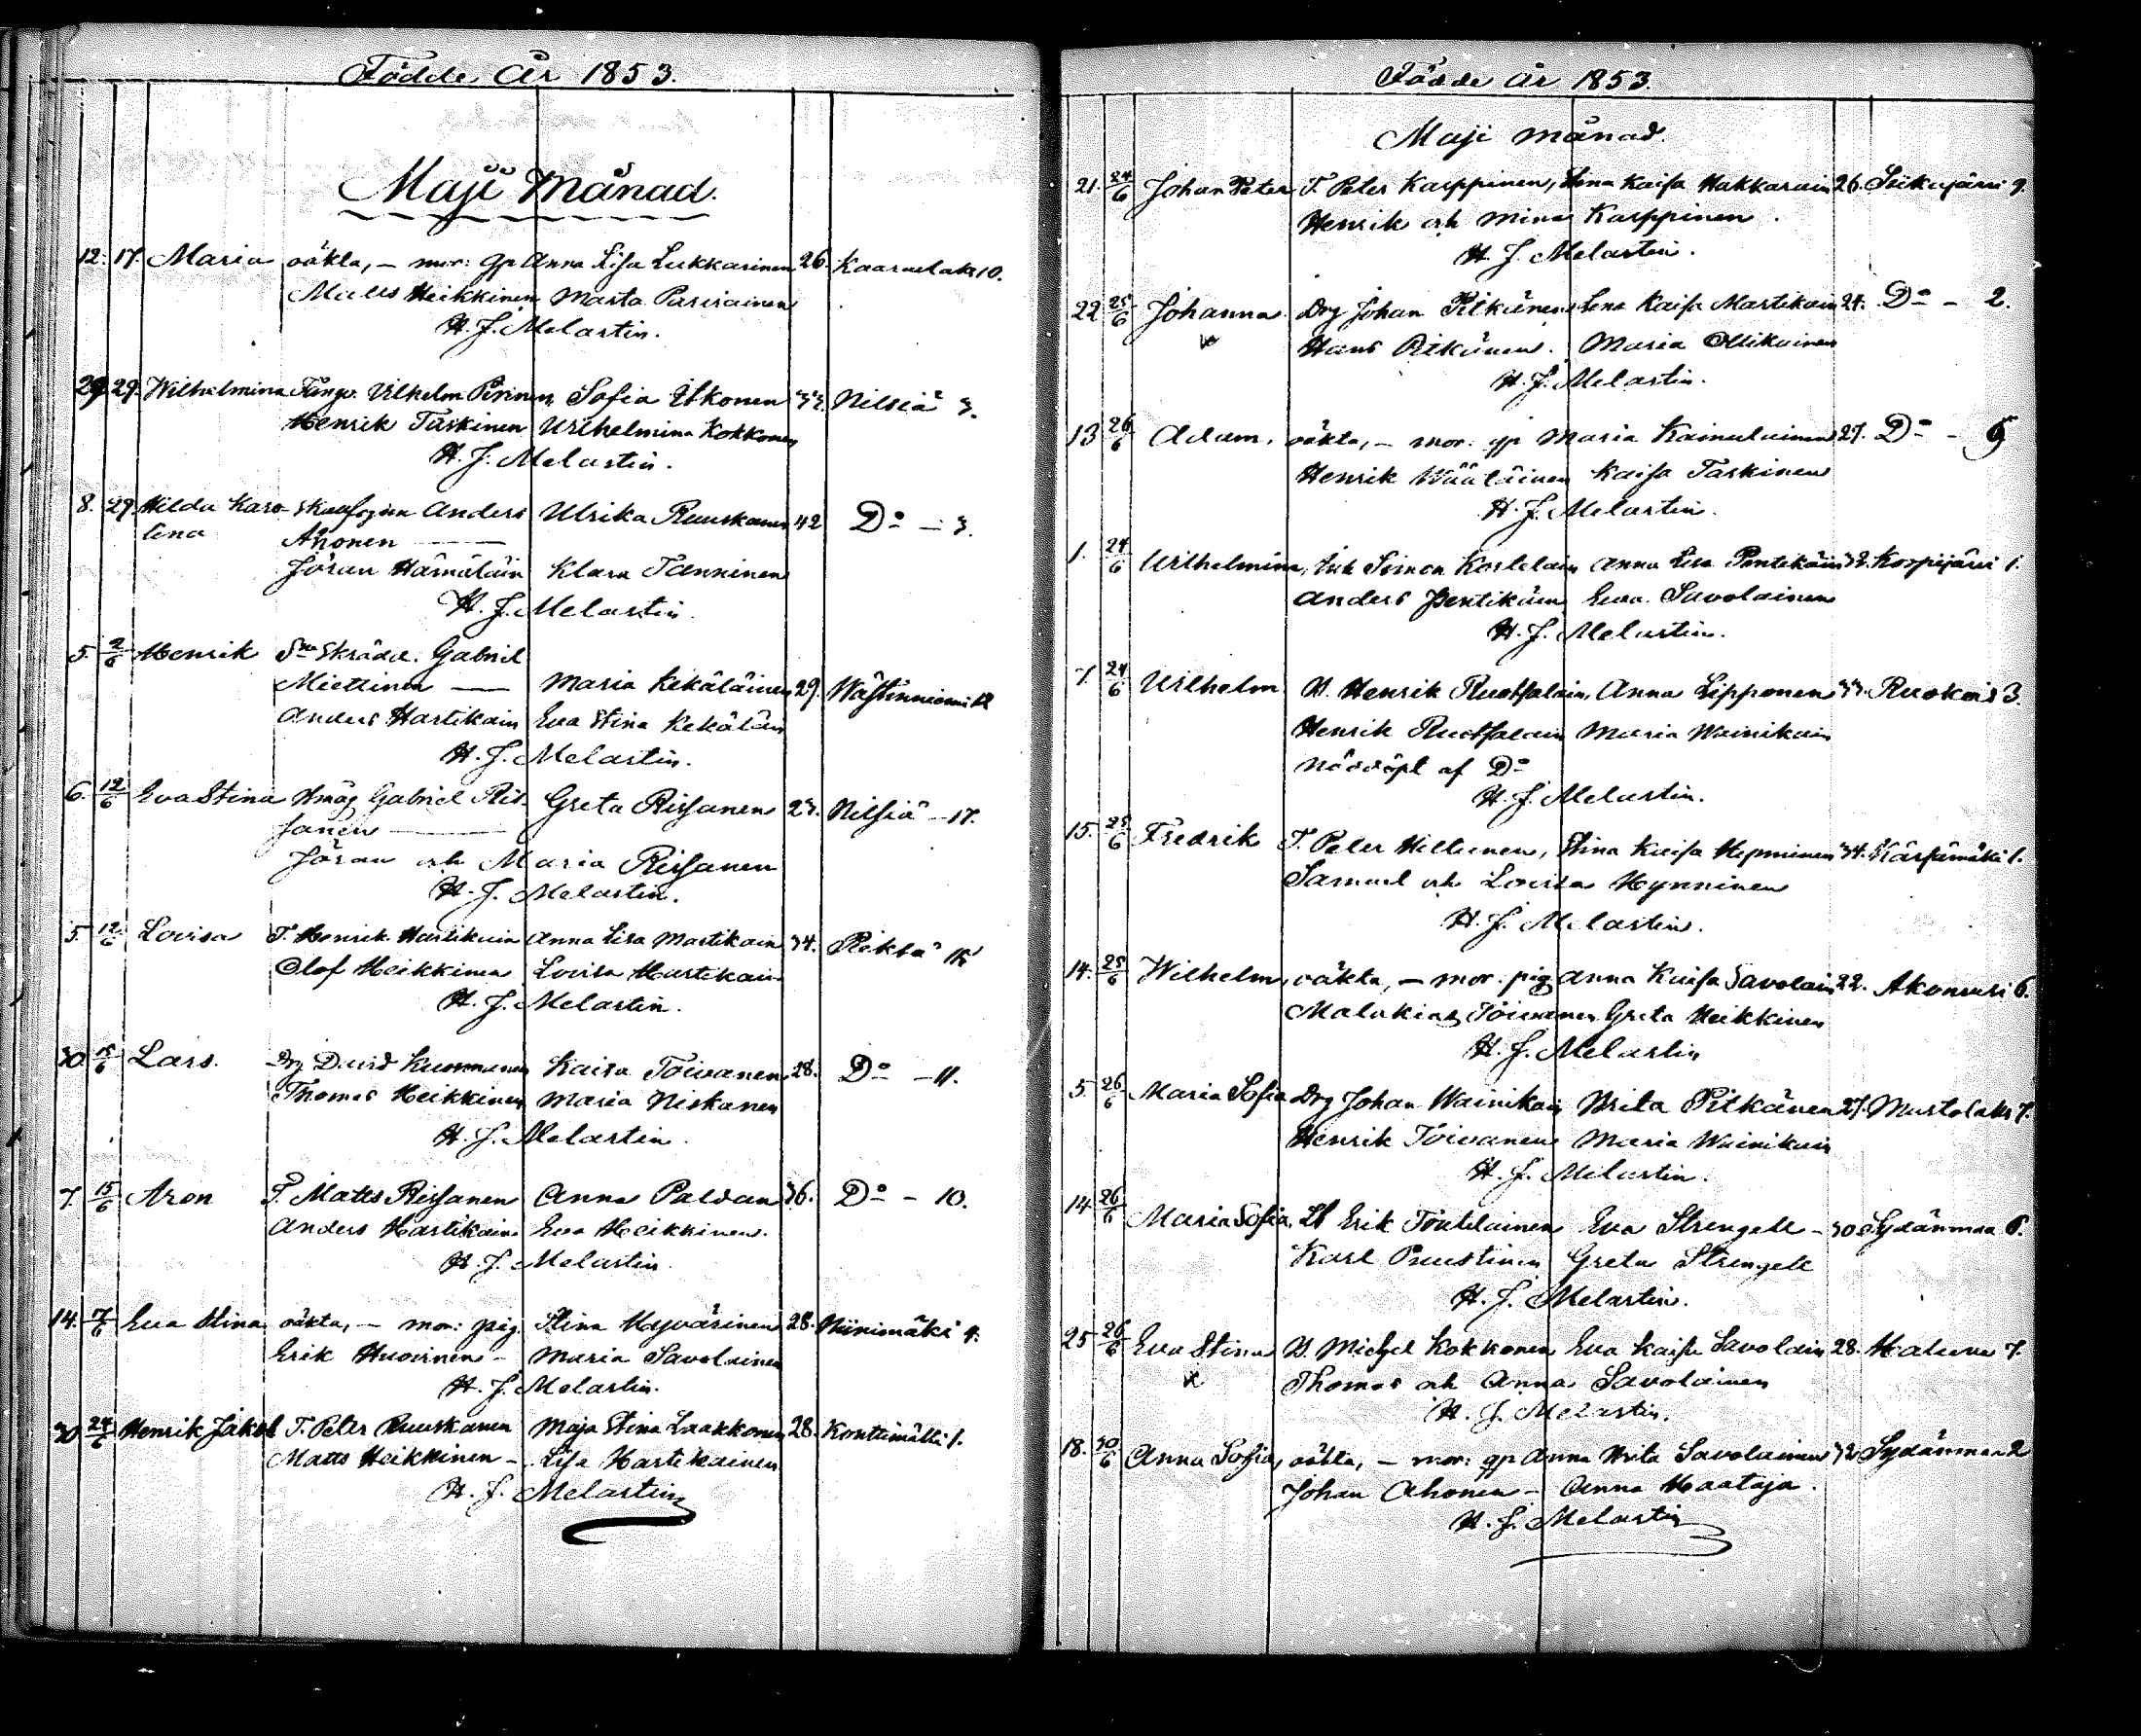 Födde År 1853.
Maji Månad.
12. 17. Maria oäkta, – mor: gp Anna Lisa Lukkarinen 26. Kaarnelaks 10.
Matts Heikkinen Marta Parviainen
H. J. Melartin.
29. 29. Wilhelmina Vilhelm Pirinen, Sofia Itkonen 33. Nilsiä 3.
Henrik Taskinen Wilhelmina Kokkonen
H. J. Melartin.
8. 29. Hilda Karo- Anders Ulrika Ruuskanen 42 Do – 3.
lina Ahonen
Jöran Hämäläin Klara Tanninen
H. J. Melartin.
5. 2/6 Henrik Skrädd. Gabriel
Miettinen — Maria Kekäläinen 29. Wästinniemi 12
Anders Hartikain Eva Stina Kekäläin
H. J. Melartin.
6. 12/6 Eva Stina Hmåg Gabriel Ris- Greta Rissanen 23. Nilsiä – 17.
sanen
Jöran och Maria Rissanen
H. J. Melartin.
5. 12/6 Lovisa T. Henrik Hartikain Anna Lisa Martikain 34. Pieksä
Olof Heikkinen Lovisa Hartikain
H. J. Melartin.
30. 15/6 Lars. Drg David Kumunen Kaisa Toivanen 28. Do – 11.
Thomas Heikkinen Maria Niskanen
H. J. Melartin.
7. 15/6 Aron T. Matts Rissanen Anna Paldan 36. Do – 10.
Anders Hartikain Eva Heikkinen.
H. J. Melartin.
14. 7/6 Eva Stina oäkta, – mor: pig. Stina Hyvärinen 28. Niinimäki 4.
Erik Huovinen – Maria Savolainen
H. J. Melartin.
30 24/6 Henrik Jakob T. Peter Ruuskanen Maja Stina Laakkonen 28. Kontimäki 1.
Matts Heikkinen – Lisa Hartikainen
H. J. Melartin
Födde År 1853.
Maji månad.
21. 24/6 Johan Peter T. Peter Karppinen, Stina Kaisa Hakkarain 26. Siikajärvi 9.
Henrik och Mina Karppinen.
H. J. Melartin.
22 25/6 Johanna Drg Johan Pitkänen Lena Kaisa Martikain 24. Do – 2.
Hans Pitkänen. Maria Ollikainen
H. J. Melartin.
13 26/6 Adam. oäkta, – mor: gp Maria Kainulainen 27. Do – 9
Henrik Wääläinen Kaisa Taskinen
H. J. Melartin.
1. 24/6 Wilhelmina, Inh Simon Karttelain Anna Lisa Pentikäin 32. Korpijärvi 1.
Anders Pentikäin Eva Savolainen
H. J. Melartin.
7. 24/6 Wilhelm B. Henrik Ruotsalain, Anna Lipponen 33. Ruokois 3.
Henrik Ruotsalain Maria Wainikain
Nöddöpt af Do
H. J. Melartin.
15. 25/6 Fredrik T. Peter Hiltunen, Stina Kaisa Hynninen 34. Kärsämäki 1.
Samuel och Lovisa Hynninen
H. J. Melartin.
14. 25/6 Wilhelm, oäkta, – mor: pig Anna Kaisa Savolain 22. Akonvesi 6.
Malakias Toivanen Greta Heikkinen
H. J. Melartin
5. 26/6 Maria Sofia Drg Johan Wainikain Brita Pitkänen 27. Mustolaks 7.
Henrik Toivanen Maria Wainikain
H. J. Melartin.
14 26/6 Maria Sofia Erik Tötlelainen Eva Strengell – 30 Sydänmaa 6.
Karl Puustinen Greta Strengell
H. J. Melartin.
25 26/6 Eva Stina B. Michel Kokkonen Eva Kaisa Savolain 28. Haluna 7.
x Thomas och Anna Savolainen
H. J. Melartin.
18. 30/6 Anna Sofia, oäkta, – mor: gp Anna Brita Savolainen 32 Sydänmaa 2
Johan Ahonen – Anna Haataja.
H. J. Melartin